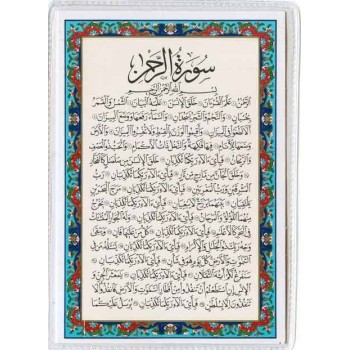 سورة الرحمن
بسم الله الرحمن الرحيم
الرَّحْمٰنُ عَلَّمَ الْقُرْاٰنَ خَلَقَ الْاِنْسَانَ عَلَّمَهُ الْبَيَانَ اَلشَّمْسُ وَالْقَمَرُ
بِحُسْبَانٍ وَالنَّجْمُ وَالشَّجَرُ يَسْجُدَانِ وَالسَّمَاءَ رَفَعَهَا وَوَضَعَ الْمِيزَانَ
اَلَّا تَطْغَوْا فِي الْمِيزَانِ وَاَقِيمُوا الْوَزْنَ بِالْقِسْطِ وَلَا تُخْسِرُوا الْمِيزَانَ وَالْاَرْضَ
وَضَعَهَا لِلْاَنَامِ فِيهَا فَاكِهَةٌ وَالنَّخْلُ ذَاتُ الْاَكْمَامِ وَالْحَبُّ ذُو الْعَصْفِ
وَالرَّيْحَانُ فَبِاَيِّ اٰلَاءِ رَبِّكُمَا تُكَذِّبَانِ خَلَقَ الْاِنْسَانَ مِنْ صَلْصَالٍ كَالْفَخَّارِ
وَخَلَقَ الْجَانَّ مِنْ مَارِجٍ مِنْ نَارٍ فَبِاَيِّ اٰلَاءِ رَبِّكُمَا تُكَذِّبَانِ رَبُّ
الْمَشْرِقَيْنِ وَرَبُّ الْمَغْرِبَيْنِ فَبِاَيِّ اٰلَاءِ رَبِّكُمَا تُكَذِّبَانِ مَرَجَ الْبَحْرَيْنِ
يَلْتَقِيَانِ بَيْنَهُمَا بَرْزَخٌ لَا يَبْغِيَانِ فَبِاَيِّ اٰلَاءِ رَبِّكُمَا تُكَذِّبَانِ يَخْرُجُ
مِنْهُمَا اللُّؤْلُؤُ وَالْمَرْجَانُ فَبِاَيِّ اٰلَاءِ رَبِّكُمَا تُكَذِّبَانِ وَلَهُ الْجَوَارِ الْمُنْشَاٰتُ
فِي الْبَحْرِ كَالْاَعْلَامِ فَبِاَيِّ اٰلَاءِ رَبِّكُمَا تُكَذِّبَانِ كُلُّ مَنْ عَلَيْهَا فَانٍ وَيَبْقٰى
وَجْهُ رَبِّكَ ذُو الْجَلَالِ وَالْاِكْرَامِ فَبِاَيِّ اٰلَاءِ رَبِّكُمَا تُكَذِّبَانِ يَسْـَٔلُهُ مَنْ فِي
السَّمٰوَاتِ وَالْاَرْضِ كُلَّ يَوْمٍ هُوَ فِي شَاْنٍ فَبِاَيِّ اٰلَاءِ رَبِّكُمَا تُكَذِّبَانِ
سَنَفْرُغُ لَكُمْ اَيُّهَ الثَّقَلَانِ فَبِاَيِّ اٰلَاءِ رَبِّكُمَا تُكَذِّبَانِ يَا مَعْشَرَ الْجِنِّ
وَالْاِنْسِ اِنِ اسْتَطَعْتُمْ اَنْ تَنْفُذُوا مِنْ اَقْطَارِ السَّمٰوَاتِ وَالْاَرْضِ فَانْفُذُوا لَا
تَنْفُذُونَ اِلَّا بِسُلْطَانٍ فَبِاَيِّ اٰلَاءِ رَبِّكُمَا تُكَذِّبَانِ يُرْسَلُ عَلَيْكُمَا